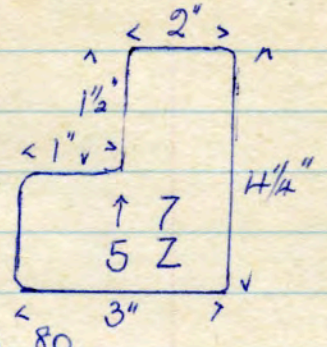 2"
1½"
1"
4¼"
↑ 7
5 Z
3"
80